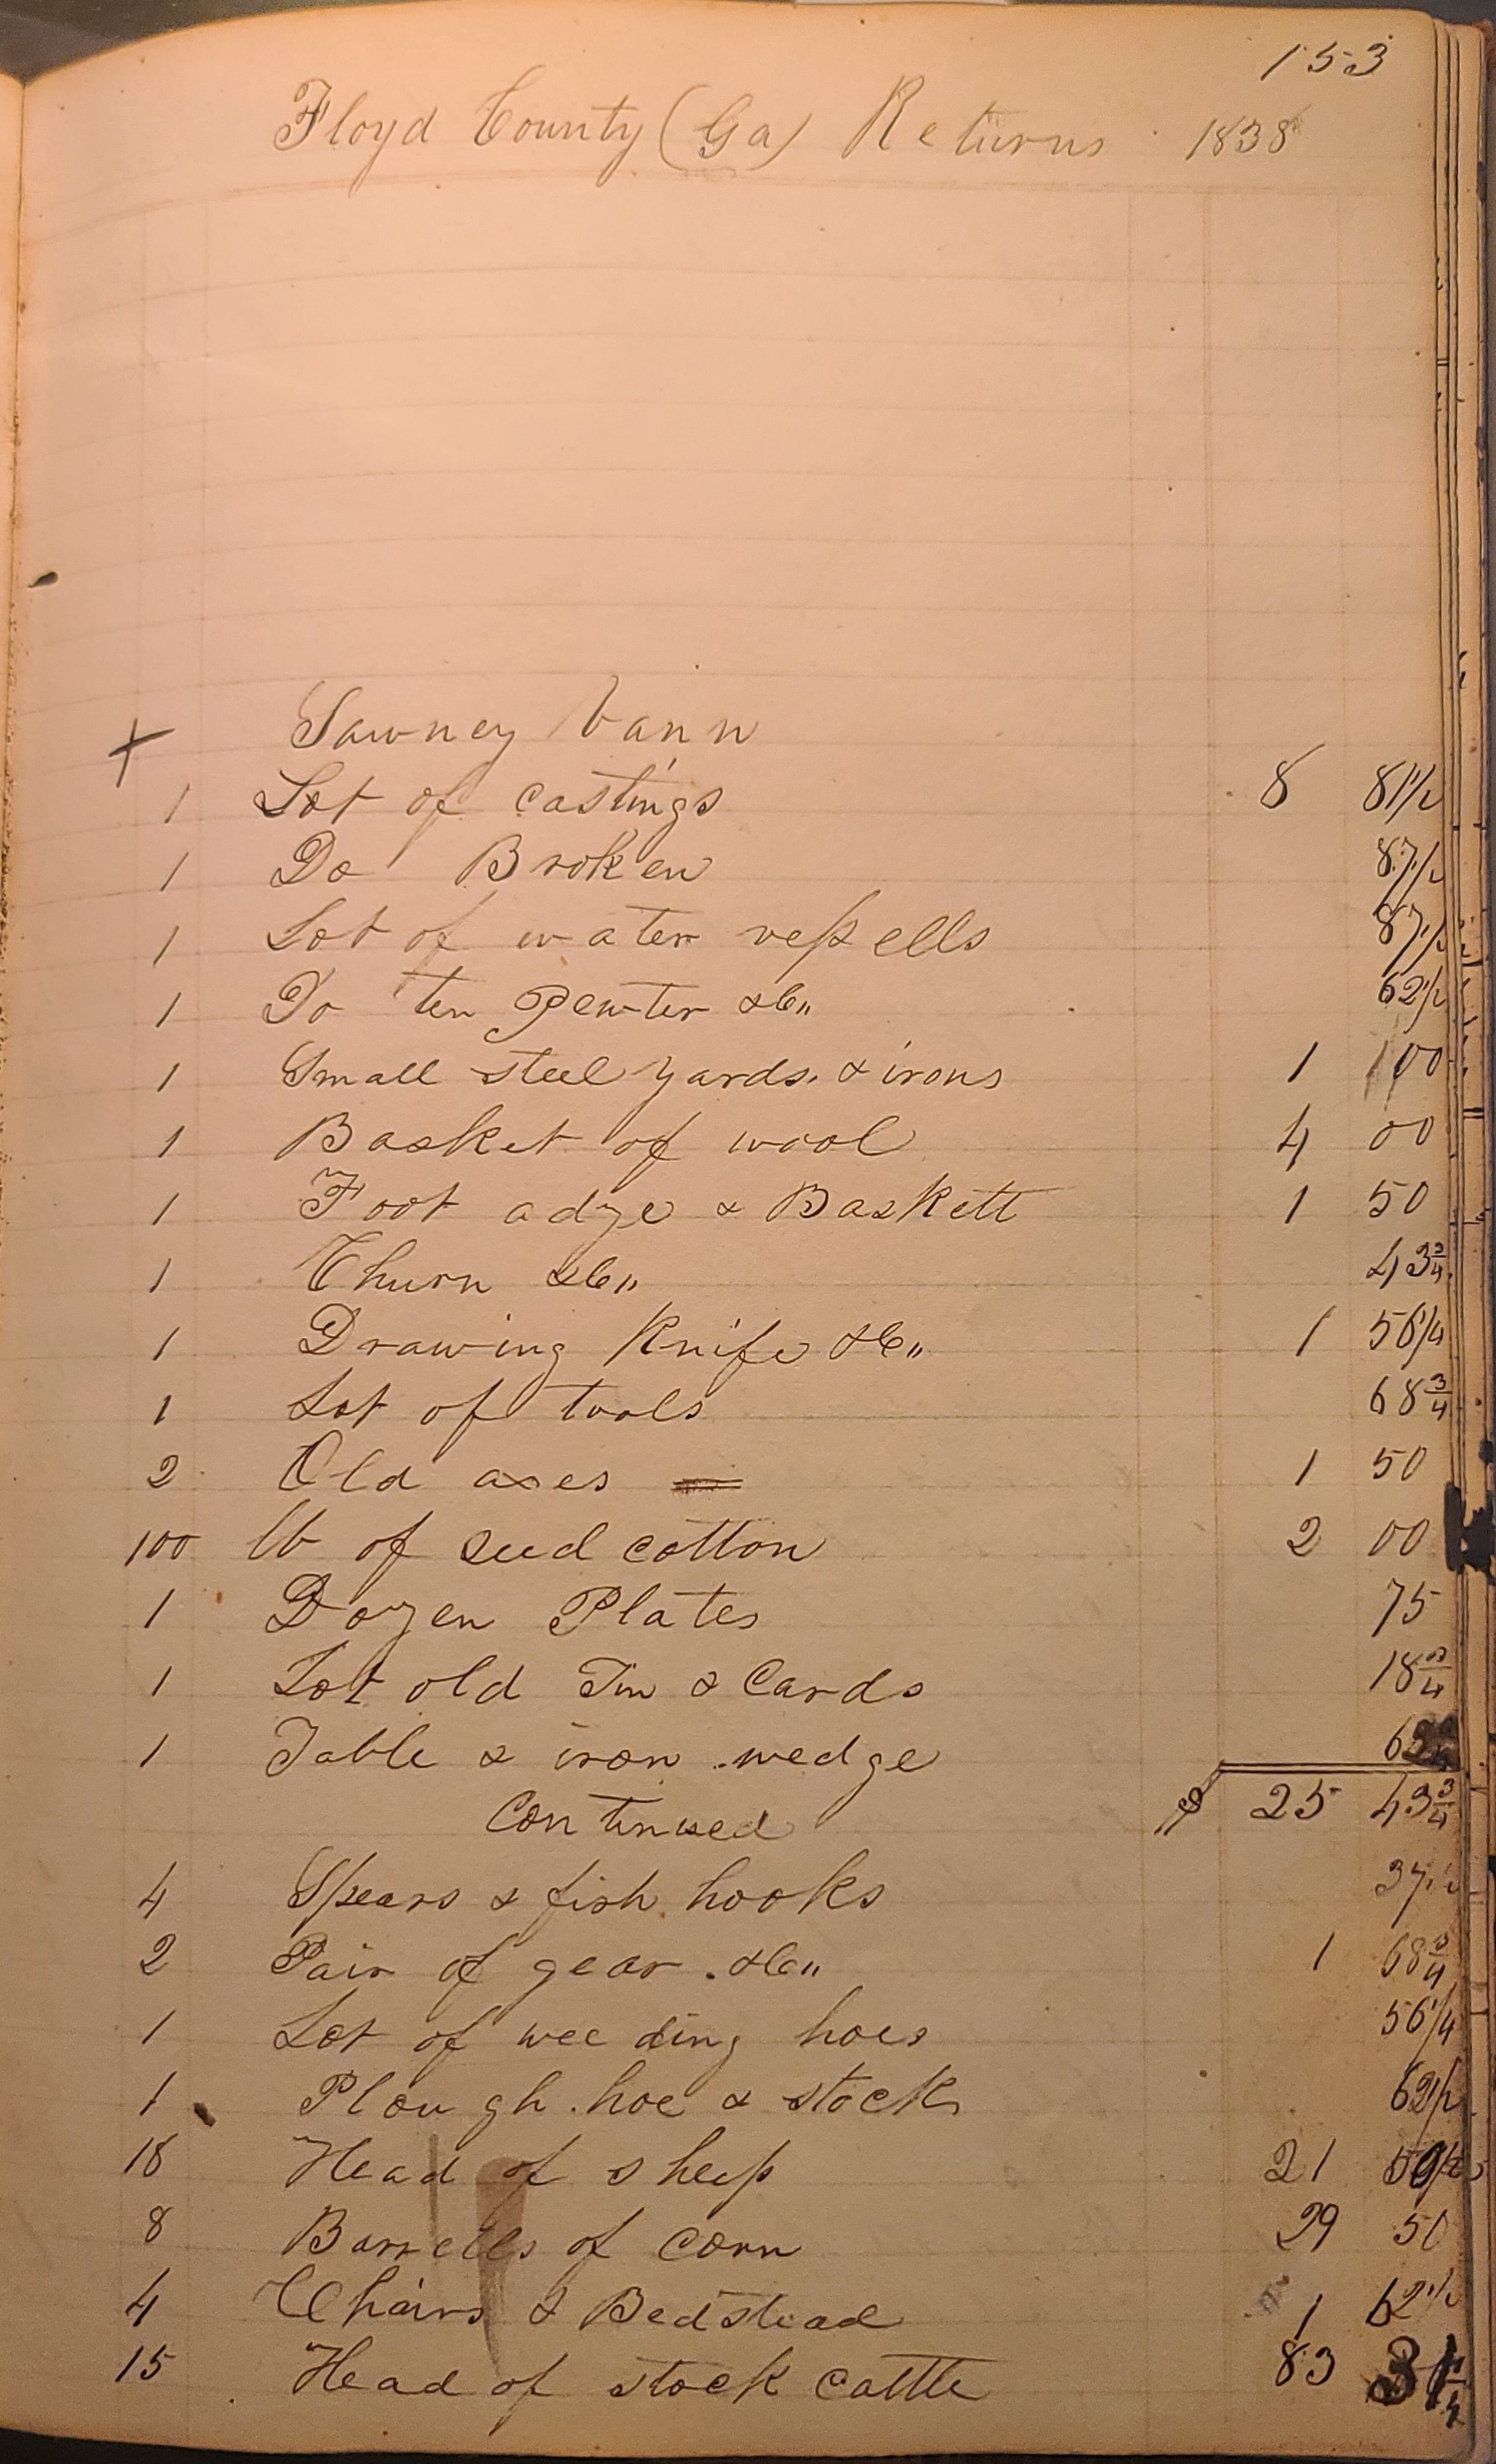 153
Floyd County (Ga) Returns 1838
+ Sawney Vann
1 Lot of castings 8 81 1/2
1 Do Broken 87 1/2
1 Lot of water vessells 87 1/2
1 Do ten Pewter &c" 62 1/2
1 Small steel yards. & irons 1 00
1 Basket of wool 4 00
1 Foot adze & Baskett 1 50
1 Churn &c" 43 3/4
1 Drawing Knife &c" 1 56 1/4
1 Lot of tools 68 3/4
2 Old axes 1 50
100 lb of seed cotton 2 00
1 Dozen Plates 75
1 Lot old Tin & Cards 18 3/4
1 Table & iron wedge
Continued $ 25 43 3/4
4 Spears & fish hooks 37 1/2
2 Pair of gear . &c" 1 68 3/4
1 Lot of weeding hoes 56 1/4
1 Plough hoe & stock 62 1/2
18 Head of sheep 21
8 Barrells of corn 29 50
4 Chairs & Bedstead 1 62 1/2
15 Head of stock cattle 83